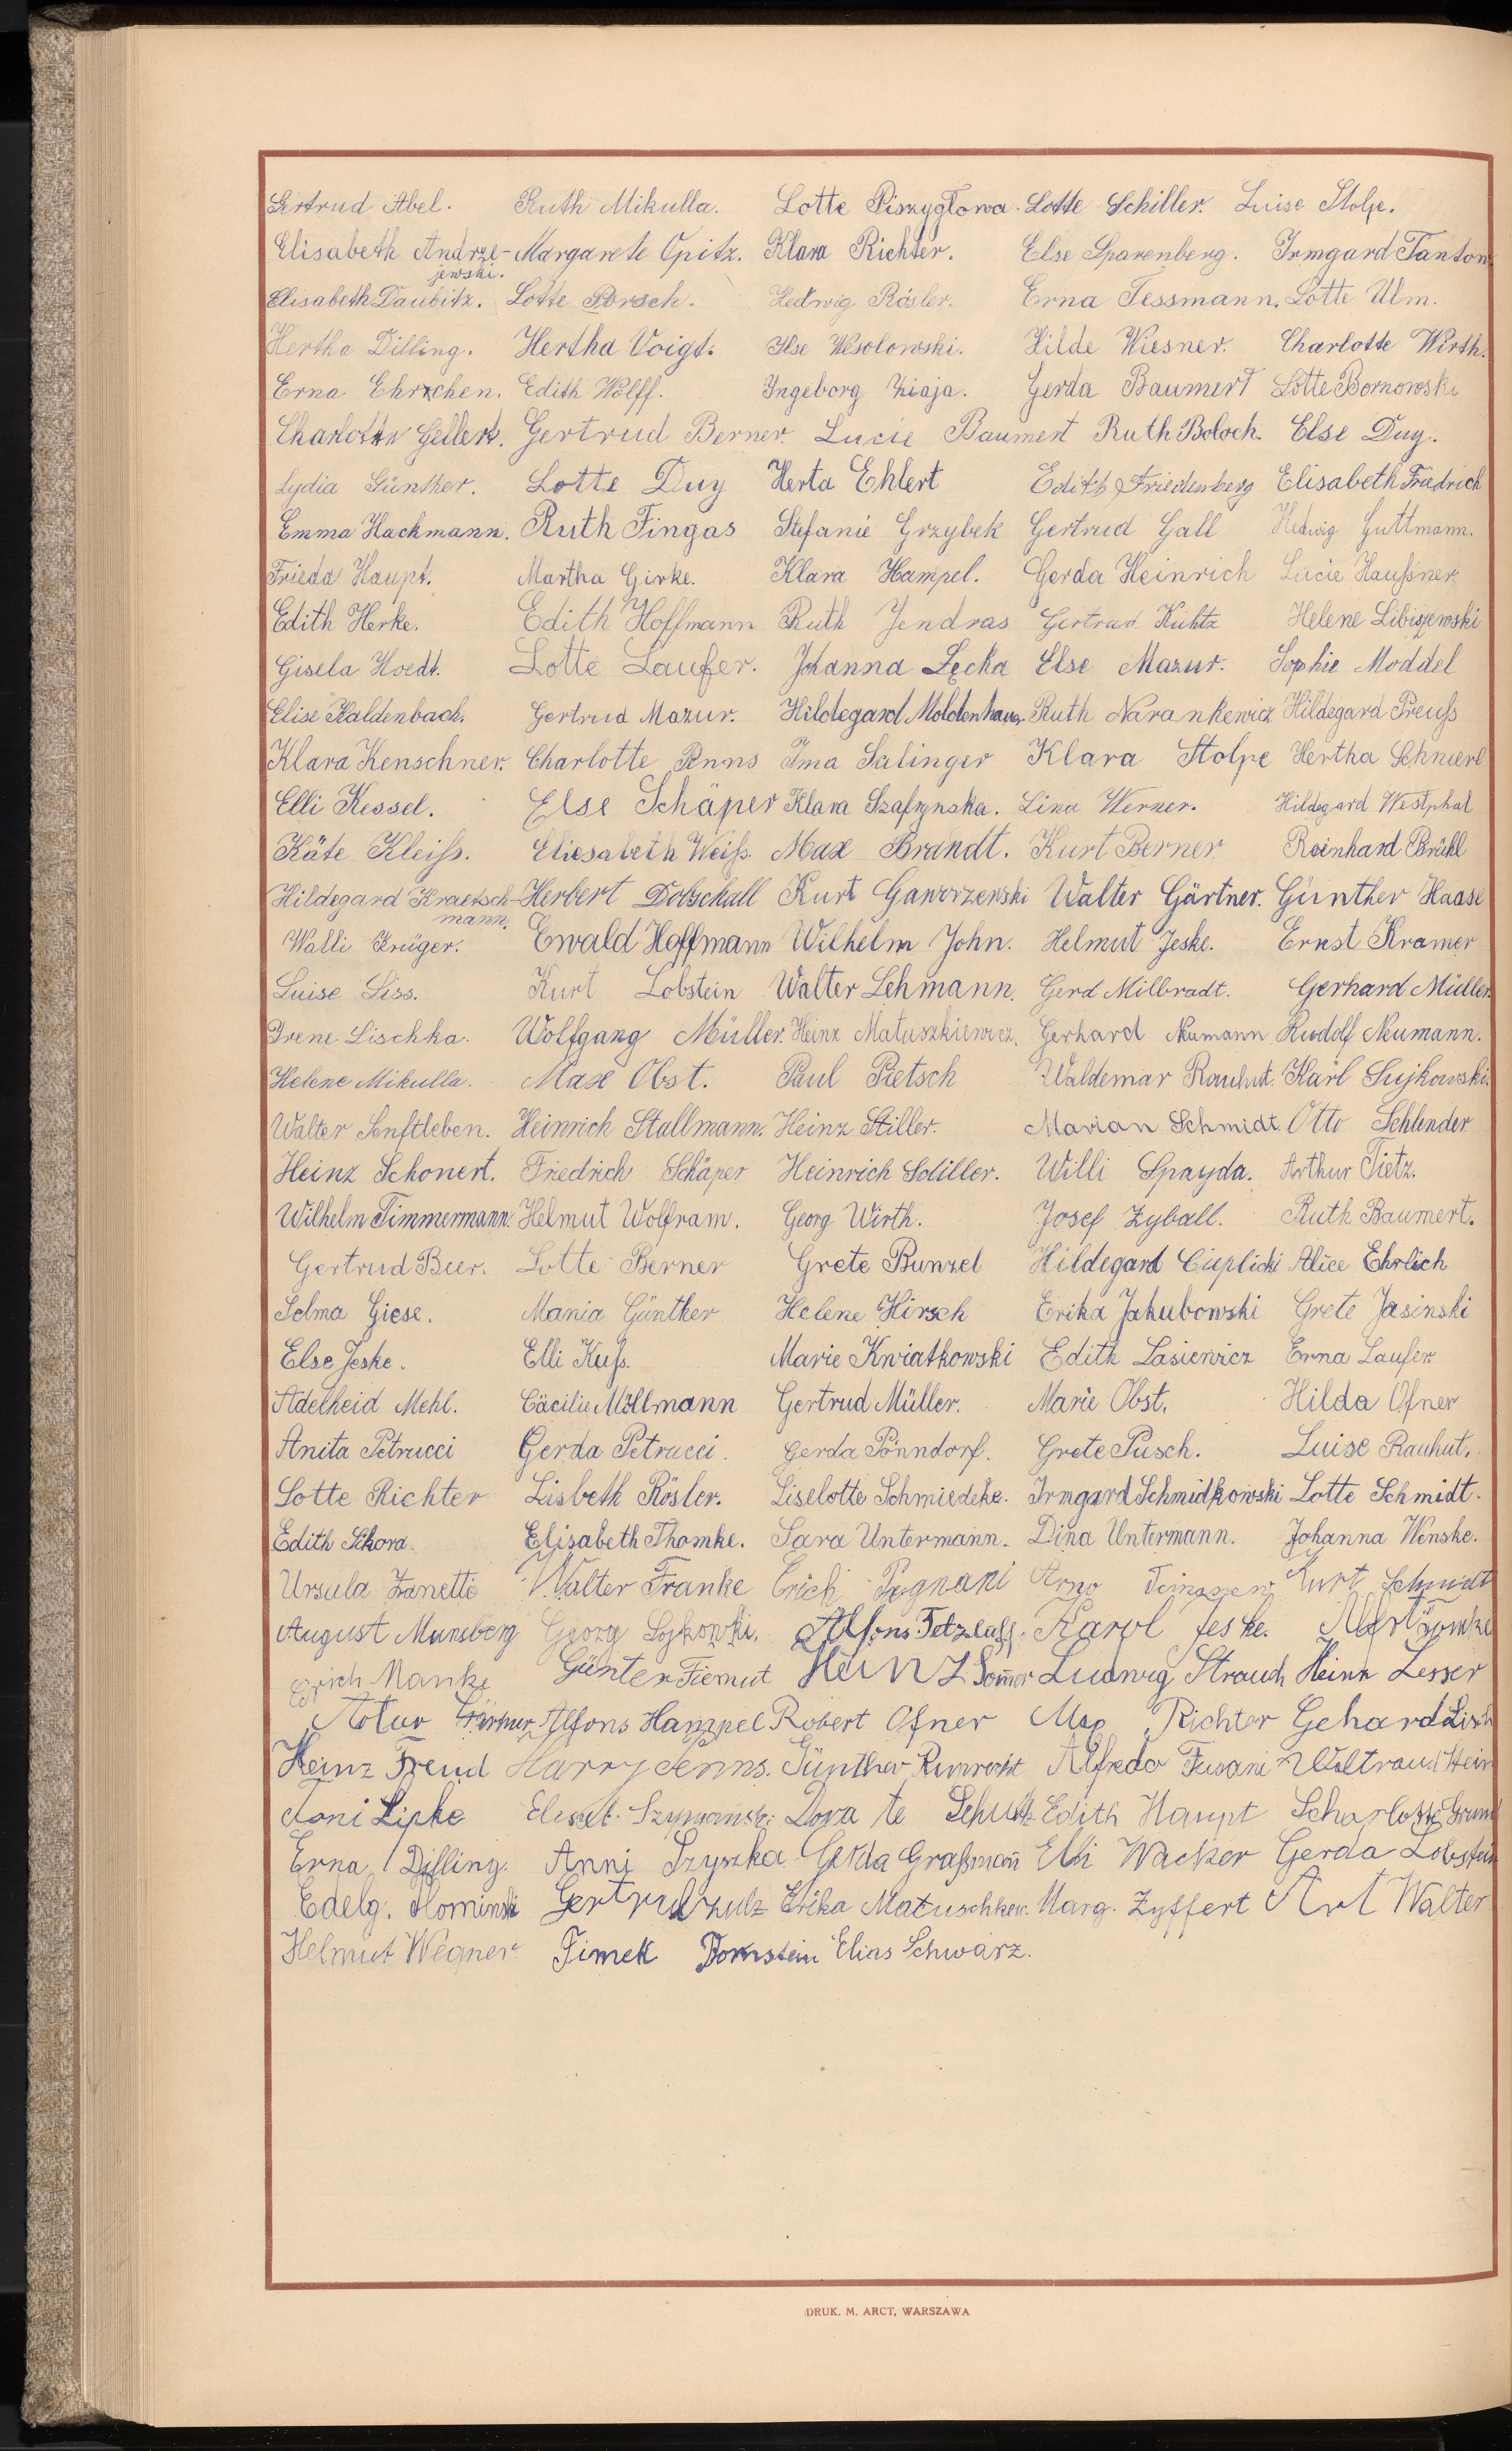 Gertrud Abel. Ruth Mikulla. Lotte Piszygłowa. Lotte Schiller. Luise Stolpe.
Elisabeth Andrze- Margarete Opitz. Klara Richter. Else Sparenberg. Irmgard Tanton
jewski.
Elisabeth Daubitz. Lotte Porsch. Hedwig Rösler. Erna Tessmann. Lotte Ulm.
Hertha Dilling. Hertha Voigt. Ilse Wesolowski. Hilde Wiesner. Charlotte Wirth.
Erna Ehrchen. Edith Wolff. Ingeborg Ziaja. Gerda Baumert Lotte Bornowski
Charlotte Gellert. Gertrud Berner. Lucie Baumert Ruth Boloch. Else Duy.
Lydia Günther. Lotte Duy Herta Ehlert Edith Friedenberg Elisabeth Friedrich
Emma Hackmann. Ruth Fingas Stefanie Grzybek Gertrud Gall Hedwig Guttmann.
Frieda Haupt. Martha Girke. Klara Hampel. Gerda Heinrich Lucie Haußner
Edith Herke. Edith Hoffmann Ruth Jendras Gertrud Kuhtz Helene Libiszewski
Gisela Hoedt. Lotte Laufer. Johanna Łęcka Else Mazur. Sophie Moddel
Elise Kaldenbach. Gertrud Mazur. Hildegard Moldenhauer Ruth Narankewicz Hildegard Preuß
Klara Kenschner. Charlotte Penns Ima Salinger Klara Stolpe Hertha Schmerl
Elli Kessel. Else Schäper Klara Szafrynska. Lina Werner. Hildegard Westphal
Käte Kleiß. Eliesabeth Weiß. Max Brandt. Kurt Berner Reinhard Brühl
Hildegard Kraetsch- Herbert Dobschall Kurt Gaworzewski Walter Gärtner. Günther Haase
mann.
Walli Krüger. Ewald Hoffmann Wilhelm John. Helmut Jeske. Ernst Kramer
Luise Liss. Kurt Lobstein Walter Lehmann. Gerd Milbradt. Gerhard Müller
Irene Lischka. Wolfgang Müller. Heinz Matuszkiewicz. Gerhard Neumann Rudolf Neumann.
Helene Mikulla. Max Obst. Paul Pietsch Waldemar Rauhut. Karl Sujkowski.
Walter Senftleben. Heinrich Stallmann. Heinz Stiller. Marian Schmidt. Otto Schlender
Heinz Schonert. Friedrich Schäper Heinrich Schiller. Willi Spayda. Arthur Tietz.
Wilhelm Timmermann. Helmut Wolfram. Georg Wirth. Josef Zyball. Ruth Baumert.
Gertrud Beer. Lotte Berner Grete Bunzel Hildegard Cieplicki Alice Ehrlich
Selma Giese. Mania Günther Helene Hirsch Erika Jakubowski Grete Jasinski
Else Jeske. Elli Kuß. Marie Kwiatkowski Edith Lasiewicz Erna Laufer
Adelheid Mehl. Cäcilie Möllmann Gertrud Müller. Marie Obst. Hilda Ofner
Anita Petrucci Gerda Petrucci. Gerda Pönndorf. Grete Pusch. Luise Rauhut.
Lotte Richter Lisbeth Rösler. Liselotte Schmiedeke. Irmgard Schmidkowski Lotte Schmidt.
Edith Sikora. Elisabeth Thomke. Sara Untermann. Dina Untermann. Johanna Wenske.
Ursula Zanetti Walter Franke Erich Pagnani Arno Kurt Schmidt
August Munsberg Georg Alfons Tetzlaff. Karol Jeske. Tomke
Erich Manke Günter Fiemut Heinz Sommer Ludwig Strauch Heinr Lesser
Artur Gärtner Alfons Hampel Robert Ofner Max Richter Gehard Lisch
Heinz Freud Harry Jenns. Günther Ruprecht Alfredo Fusani Waltraud Hein
Toni Lipke Elisab. Szymanski Dora te Schultz Edith Haupt Scharlotte Grund
Erna Dilling. Anni Szyszka Gerda Graßmann Elli Wacker Gerda Lobstein
Edelg. Slominski Gertrud Erika Matuschkew. Marg. Zyffert Art Walter
Helmut Wegner Fimek Bornstein Elias Schwarz.
DRUK. M. ARCT, WARSZAWA